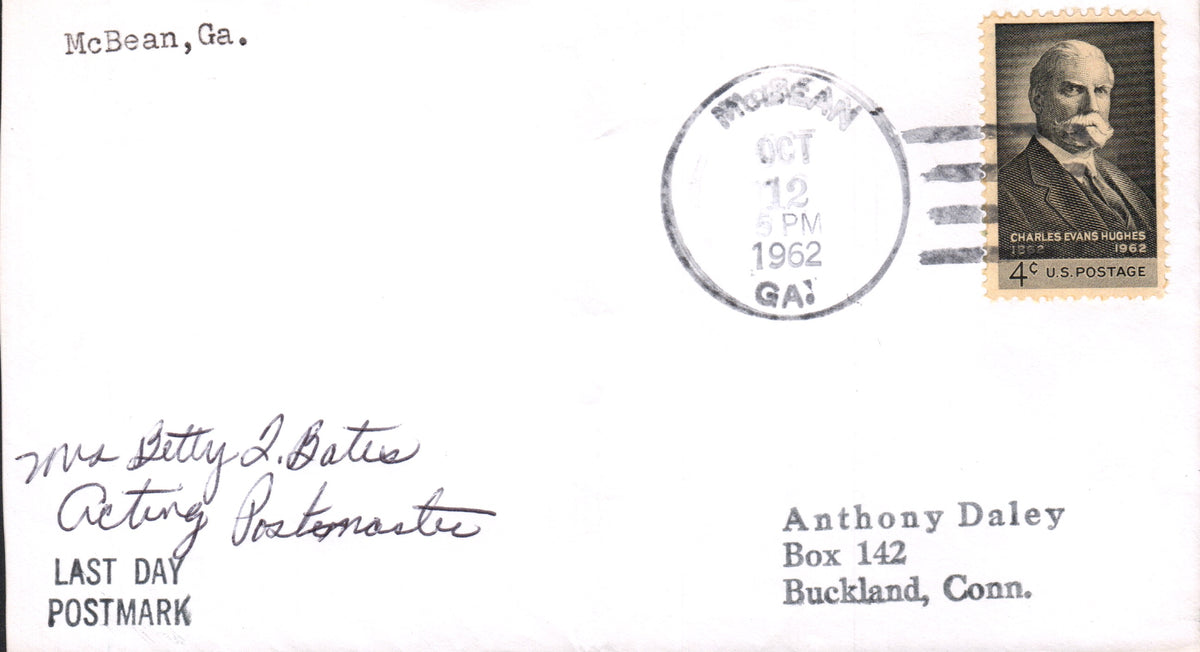 McBean, Ga.
McBEAN
OCT
12
5 PM
1962
GA.
CHARLES EVANS HUGHES
1862 1962
4¢ U.S. POSTAGE
Mrs Betty I. Bates
Acting Postmaster
LAST DAY
POSTMARK
Anthony Daley
Box 142
Buckland, Conn.